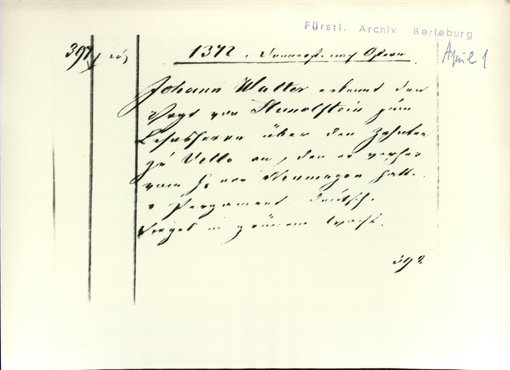 Fürstl. Archiv Berleburg
397 1372. Donnerst. nach Ostern April 1
Johann Walter erkennt den
Vogt von Hunolstein zum
Lehnsherrn über den Zehnten
zu Velle an, den er vorher
vom H. von Neumagen hatte.
Pergament deutsch.
Siegel in grünem Wachs.
392